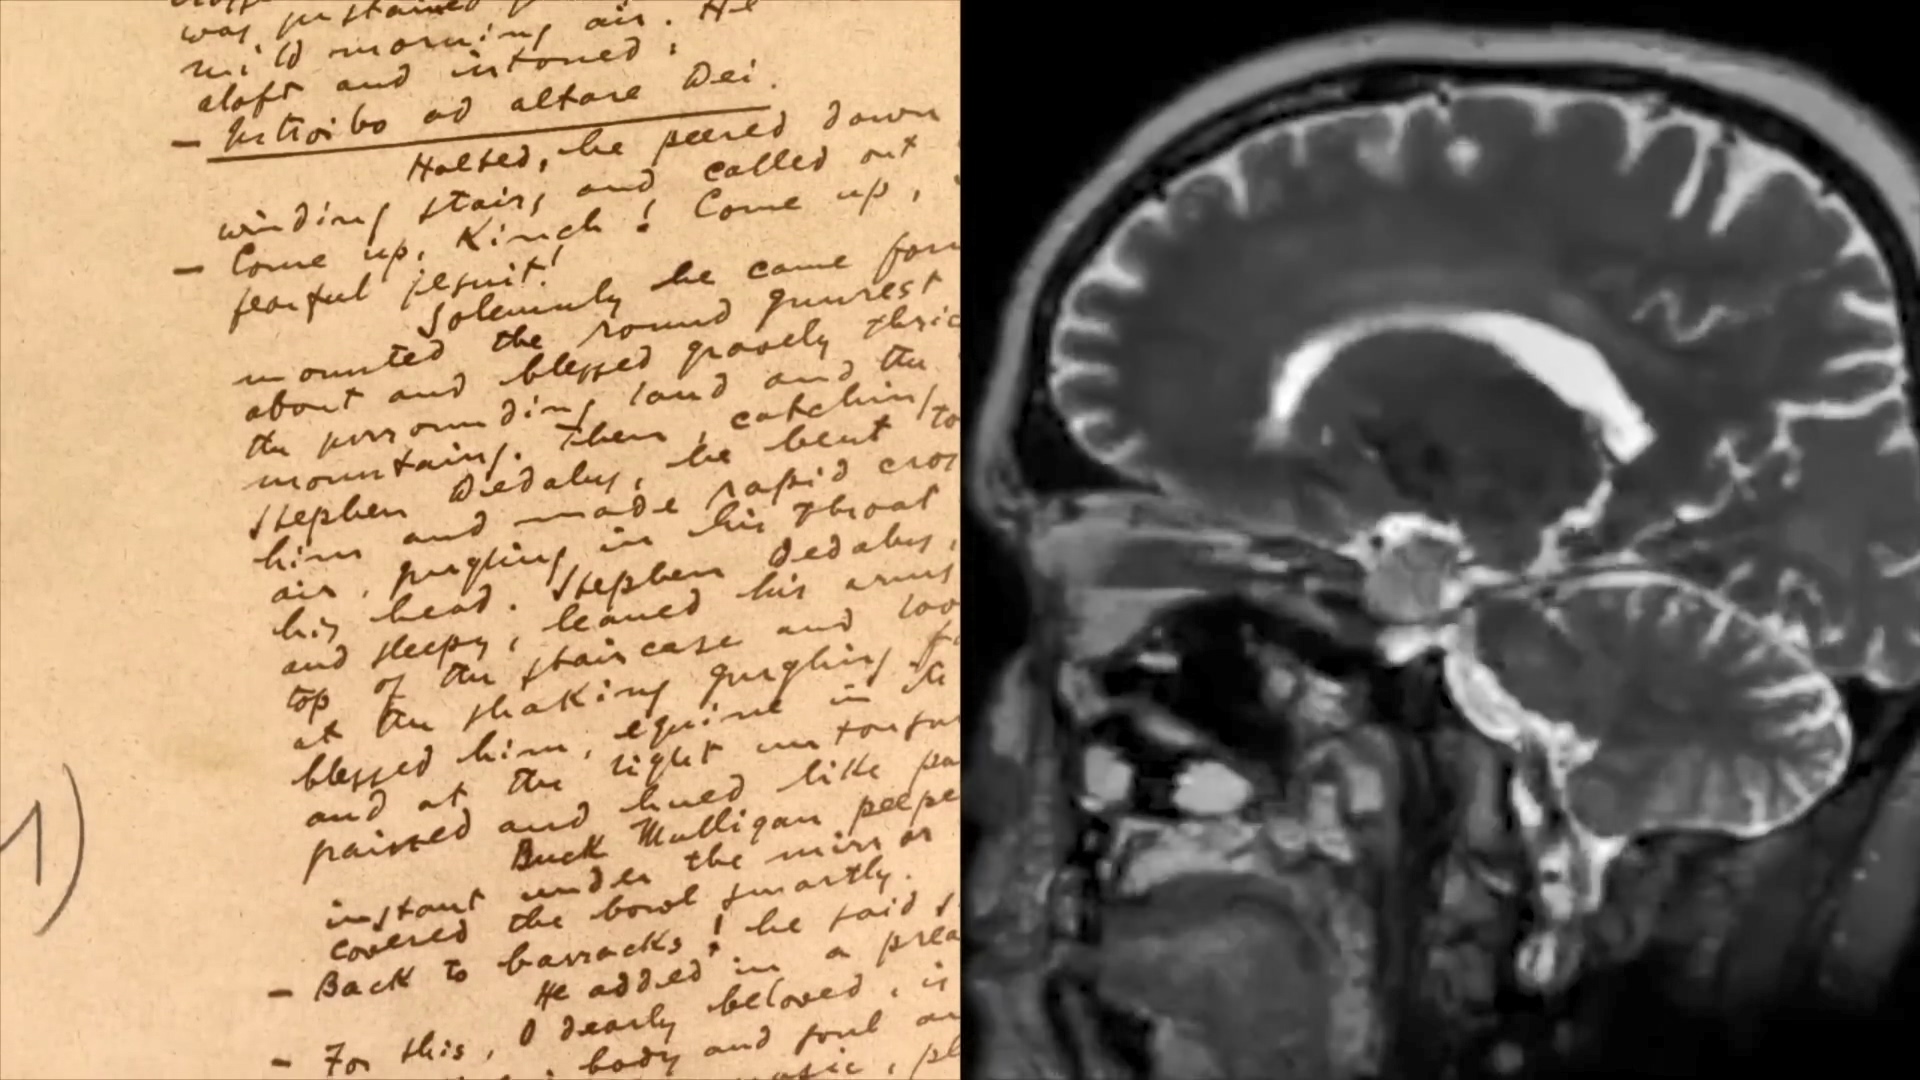 was sustained
mild morning air. He
aloft and intoned:
— Introibo ad altare Dei.
Halted, he peered down
winding stairs and called out
— Come up, Kinch! Come up,
fearful jesuit!
Solemnly he came for
mounted the round gunrest
about and blessed gravely thric
the surrounding land and the
mountains. Then, catching
Stephen Dedalus, he bent to
him and made rapid cros
air, gurgling in his throat
his head. Stephen Dedalus,
and sleepy, leaned his arms
top of the staircase and loo
at the shaking gurgling fa
blessed him, equine in its
and at the light untonsu
grained and hued like pa
Buck Mulligan peepe
instant under the mirror
covered the bowl smartly.
— Back to barracks! he said s
He added in a prea
— For this, O dearly beloved, is
body and soul an
music, pl
1)